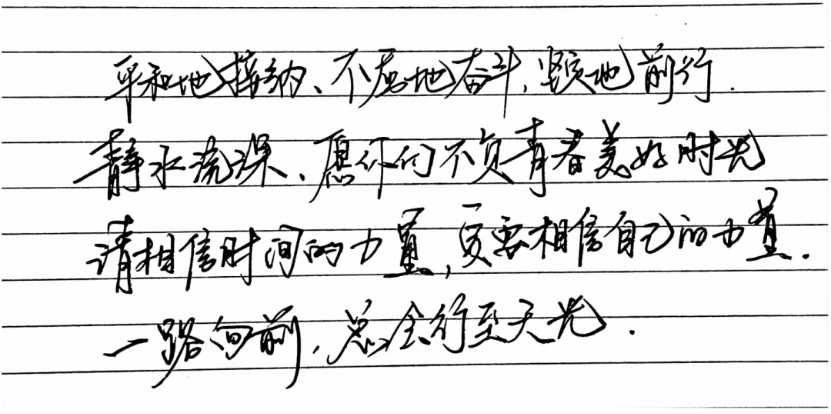 平和地接纳、不屈地奋斗,坚定地前行.
静水流深、愿你们不负青春美好时光
请相信时间的力量,更要相信自己的力量.
一路向前,总会行至天光.